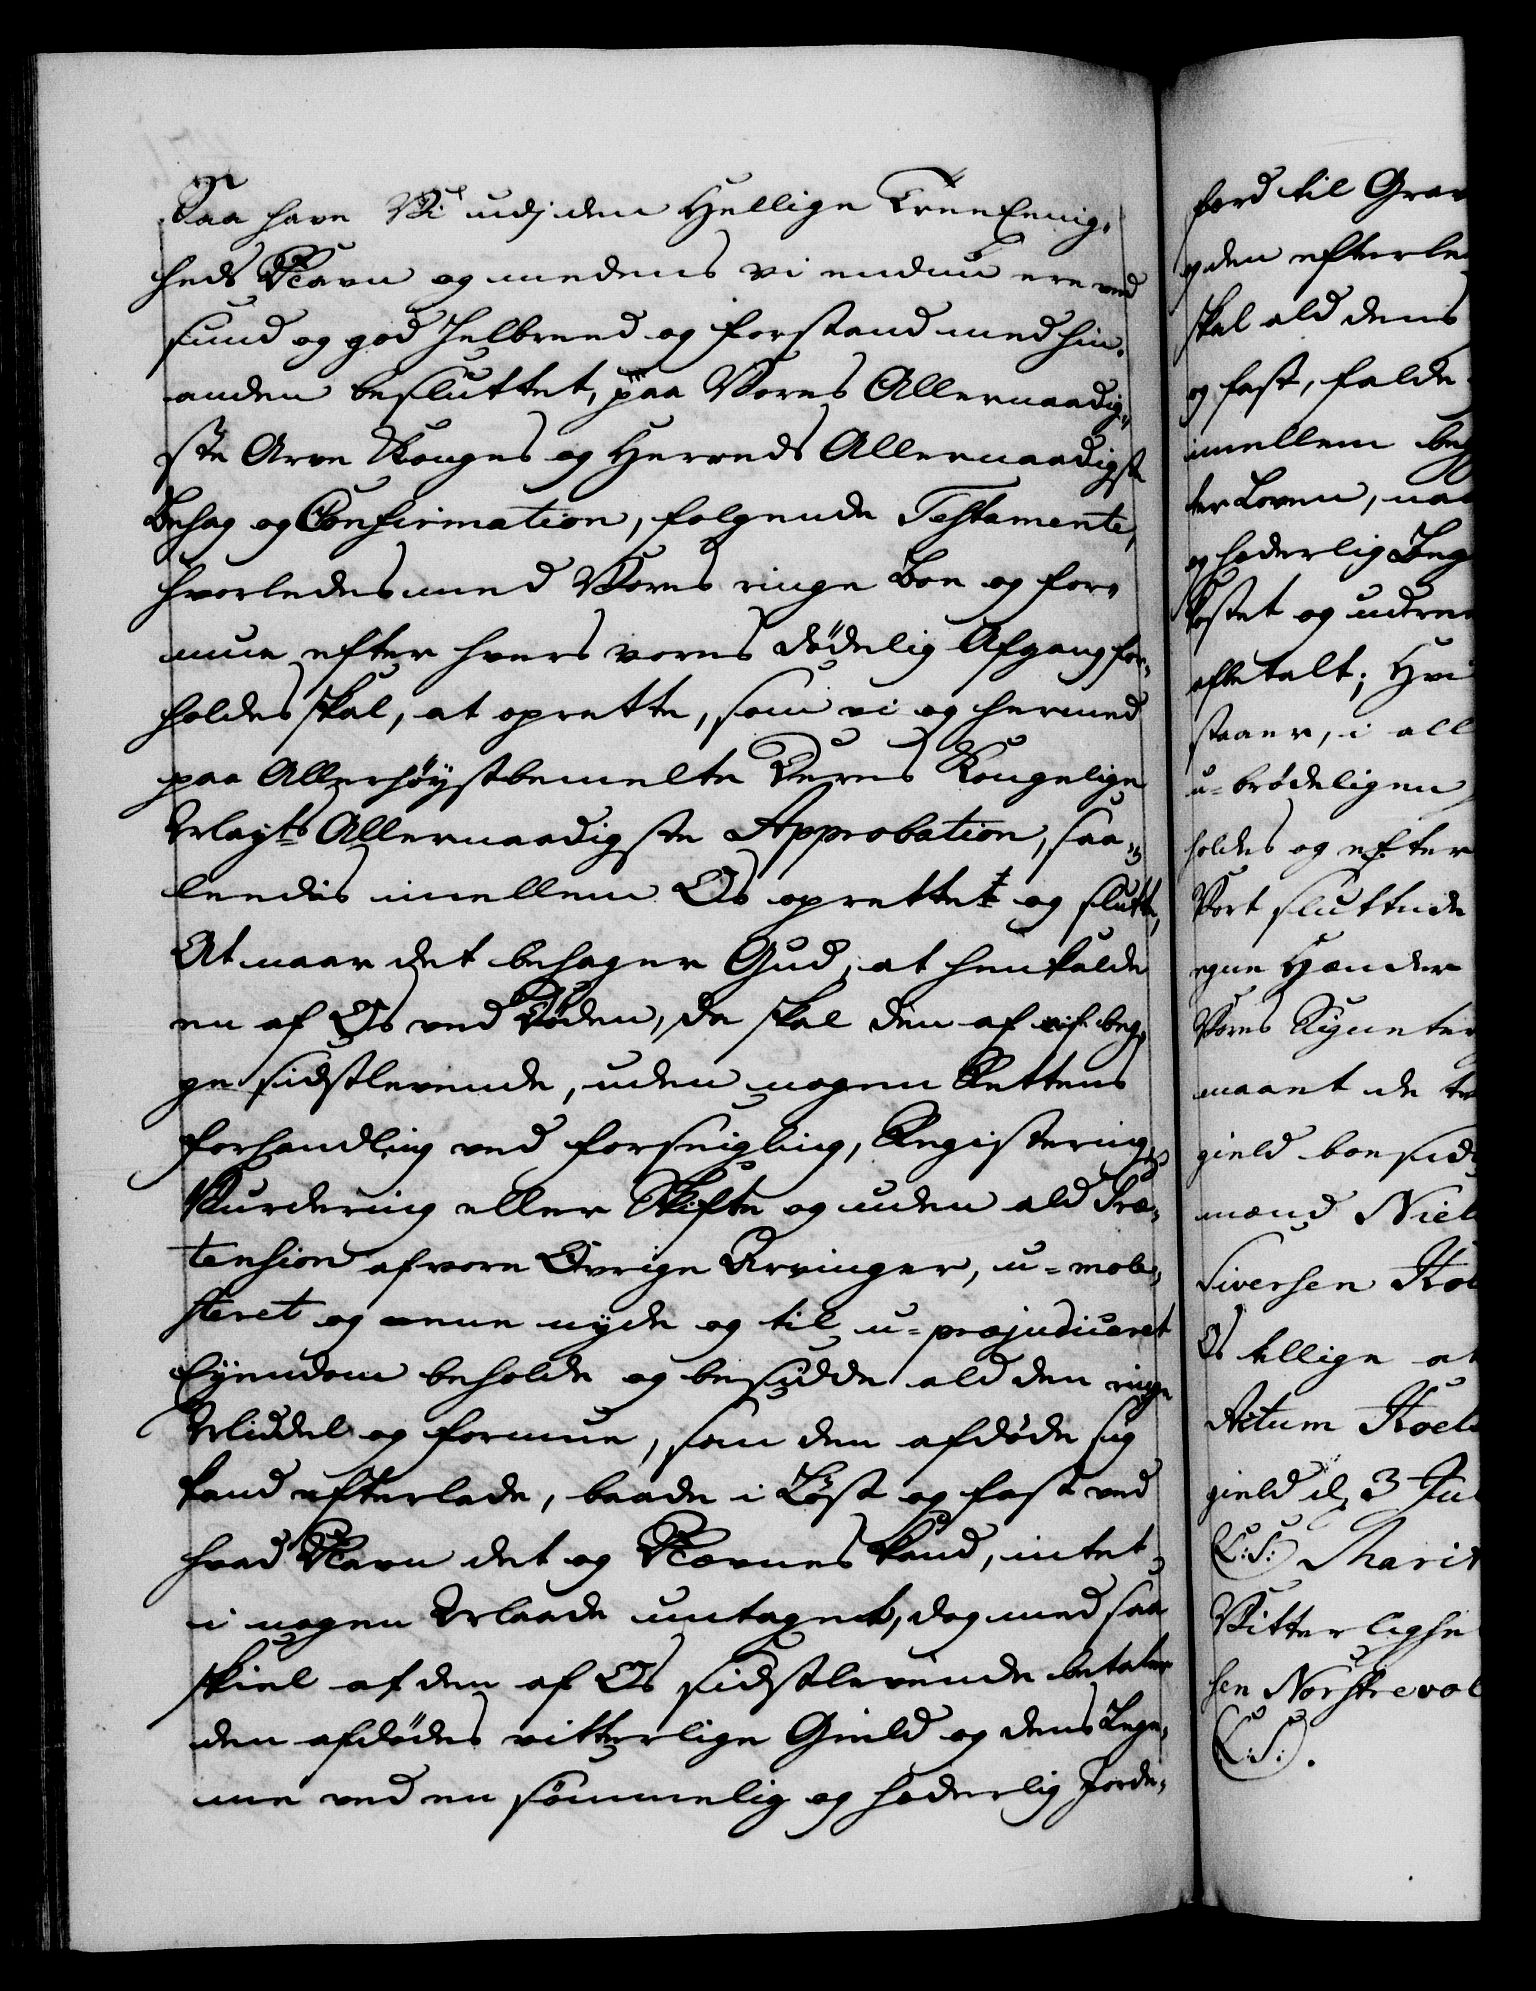 Saa have Vi udj den Hellige Tree Eenig,
heds Navn og medens vi endnu ere ved
sund og god Helbreed og Forstand med hin,
anden besluttet, paa Vores Allernaadig,
ste Arve Konges og Herreds Allernaadigst
Behag og Confirmation, følgende Testamente,
hvorledes med Vores ringe Boe og For,
mue efter hvers vores dødelig Afgang for,
holdes skal, at oprette, som vi og hermed
paa Allerhøystbemelte Deres Kongelige
Mayts Allernaadigste Approbation, saa,
leedis imellem Os oprettet og slutte,
At naar det behager Gud, at henkalde
en af Os ved Døden, da skal den af beg,
ge sidstlevende, uden nogen Rettens
Forhandling ved Forseigling, Registering,
Vurdering eller Skifte og uden ald Præ,
tension af vore Øvrige Arvinger, u-mole,
steret og eene nyde og til u-præjudiceret
Eyendom beholde og besidde ald den ringe
Middel og Formue, som den afdøde sig
kand efterlade, baade i Løst og fast ved
hvad Navn det og Nævnes kand, intet
i nogen Maade undtagent, dog med saa
skiel af den af Os sidstlevende betaler
den afdødes vitterlige Gield og dens Lege,
me ved en sømmelig og hæderlig Jorde,
færd til Grav
og den efterle
skal ald dens
og fast, falde
imellem beg
ter Loven, naa
og hæderlig Beg
kostet og udree
afbetalt; Hvi
staaer, i all
u-brødeligen
holdes og efter
Vort sluttede
egne Hænder
Vores Signeter
maant de to
gield boesidd
mænd Niel
Siversen Koe
Os tillige at
Actum Koel
gield d. 3 Ju
(L:S:) Marit
Vitterlighe
sen Norstrevol
(L:S:).